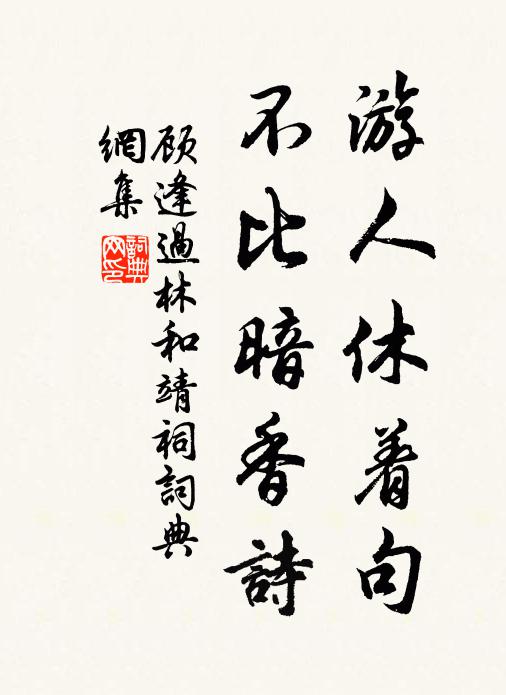 游人休着句
不比暗香詩
顾逢過林和靖祠詞典
網集
詞典
网印